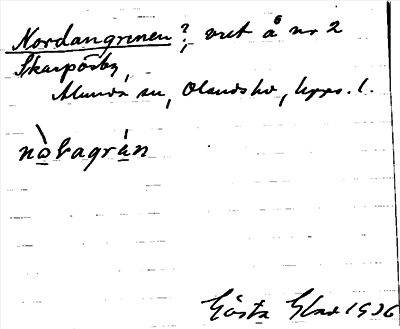 Nordangrenen?, vret å nr 2
Skarpösby,
Alunda sn, Olands hd, Upps. l.
nòḷagrán
Gösta Elav 1936